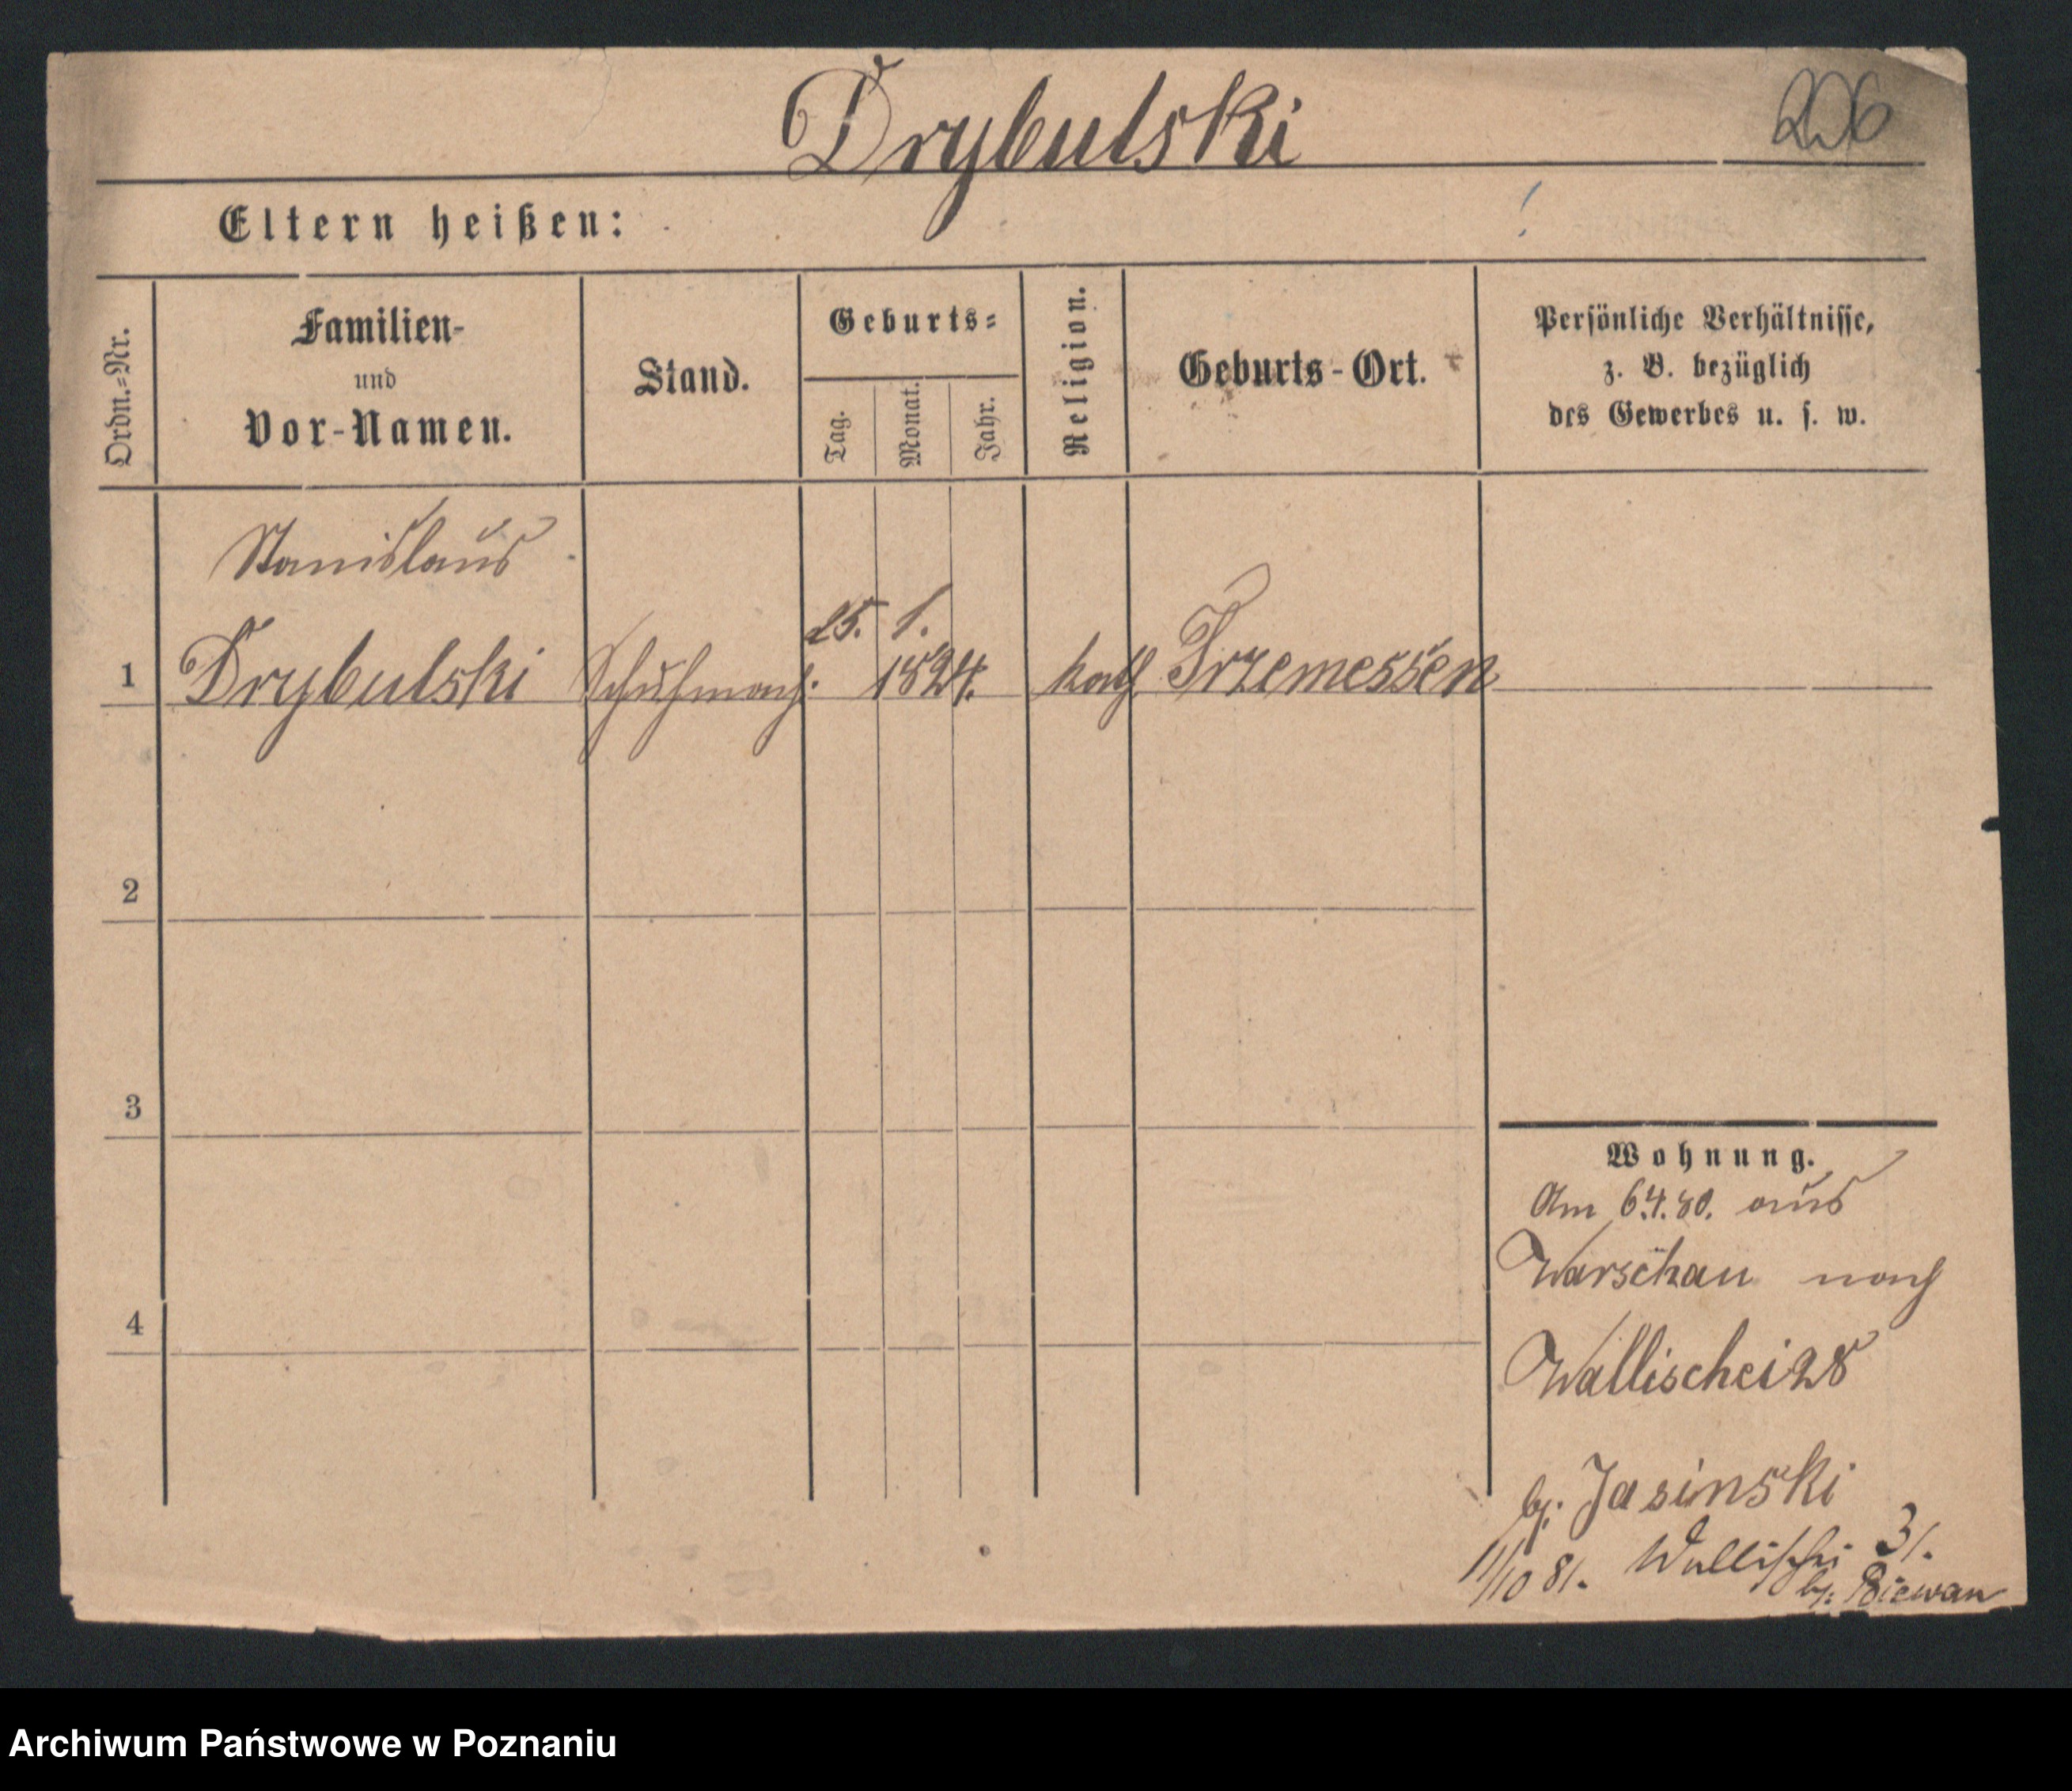 Drybulski
226
Eltern heißen:
Ordn.=Nr.
Familien-
und
Vor-Namen.
Stand.
Geburts=
Tag.
Monat.
Jahr.
Religion.
Geburts-Ort.
Persönliche Verhältnisse,
z. B. bezüglich
des Gewerbes u. s. w.
Stanislaus
1 Drybulski Schuhmach. 25. 1. 1824. kath. Trzemessen
2
3
4
Wohnung.
Am 6.4.80. aus
Warschau nach
Wallischei 28
bj. Jasinski
11/10 81. Wallischei 31.
bj.
Archiwum Państwowe w Poznaniu